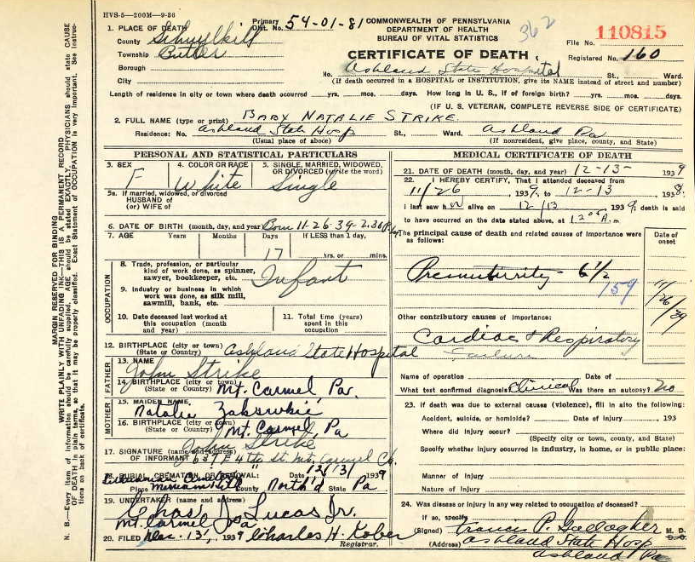 HVS-5-200M-9-38
Primary Dist. No. 54-01-81
COMMONWEALTH OF PENNSYLVANIA
DEPARTMENT OF HEALTH
BUREAU OF VITAL STATISTICS
362
110815
CERTIFICATE OF DEATH
File No.
Registered No. 160
1. PLACE OF DEATH
County Schuylkill
Township Butler
Borough
City
No. Ashland State Hospital St., Ward.
(If death occurred in a HOSPITAL or INSTITUTION, give its NAME instead of street and number)
Length of residence in city or town where death occurred yrs. mos. days. How long in U. S., if of foreign birth? yrs. mos. days.
(IF U. S. VETERAN, COMPLETE REVERSE SIDE OF CERTIFICATE)
2. FULL NAME (type or print) BABY NATALIE STRIKE
Residence: No. Ashland State Hosp St., Ward. Ashland Pa
(Usual place of abode) (If nonresident, give place, county, and State)
PERSONAL AND STATISTICAL PARTICULARS
3. SEX F
4. COLOR OR RACE White
5. SINGLE, MARRIED, WIDOWED, OR DIVORCED (write the word) Single
5a. If married, widowed, or divorced
HUSBAND of
(or) WIFE of
6. DATE OF BIRTH (month, day, and year) Born 11-26-39-2.30
7. AGE Years Months Days 17 If LESS than 1 day, hrs. or mins.
OCCUPATION
8. Trade, profession, or particular kind of work done, as spinner, sawyer, bookkeeper, etc. Infant
9. Industry or business in which work was done, as silk mill, sawmill, bank, etc.
10. Date deceased last worked at this occupation (month and year)
11. Total time (years) spent in this occupation
12. BIRTHPLACE (city or town) (State or Country) Ashland State Hospital
FATHER
13. NAME John Strike
14. BIRTHPLACE (city or town) (State or Country) Mt. Carmel Pa.
MOTHER
15. MAIDEN NAME Natalie
16. BIRTHPLACE (city or town) (State or Country) Mt. Carmel Pa
17. SIGNATURE (name and address) OF INFORMANT John Strike
4th St. Mt. Carmel
18. BURIAL, CREMATION, OR REMOVAL: Date 12/13/1939
Place County North'd State Pa
19. UNDERTAKER (name and address) Chas. J. Lucas Jr.
Mt. Carmel Pa
20. FILED Dec. 13, 1939 Charles H. Kober
Registrar.
MEDICAL CERTIFICATE OF DEATH
21. DATE OF DEATH (month, day, and year) 12-13- 1939
22. I HEREBY CERTIFY, That I attended deceased from
11/26 1939, to 12-13 1939.
I last saw her alive on 12/13 1939, death is said
to have occurred on the date stated above, at A.m.
The principal cause of death and related causes of importance were as follows:
Date of onset
Prematurity - 6 1/2
159
11/26/39
Other contributory causes of importance:
Cardiac & Respiratory
Failure
Name of operation Date of
What test confirmed diagnosis? Clinical Was there an autopsy? No
23. If death was due to external causes (violence), fill in also the following:
Accident, suicide, or homicide? Date of injury 193
Where did injury occur?
(Specify city or town, county, and State)
Specify whether injury occurred in industry, in home, or in public place:
Manner of injury
Nature of injury
24. Was disease or injury in any way related to occupation of deceased?
If so, specify
(Signed) Francis P. Gallagher M. D.
(Address) Ashland State Hosp
Ashland Pa
MARGIN RESERVED FOR BINDING
WRITE PLAINLY WITH UNFADING INK—THIS IS A PERMANENT RECORD
N. B.—Every item of information should be carefully supplied. AGE should be stated EXACTLY. PHYSICIANS should state CAUSE OF DEATH in plain terms, so that it may be properly classified. Exact Statement of OCCUPATION is very important. See instructions on back of certificate.